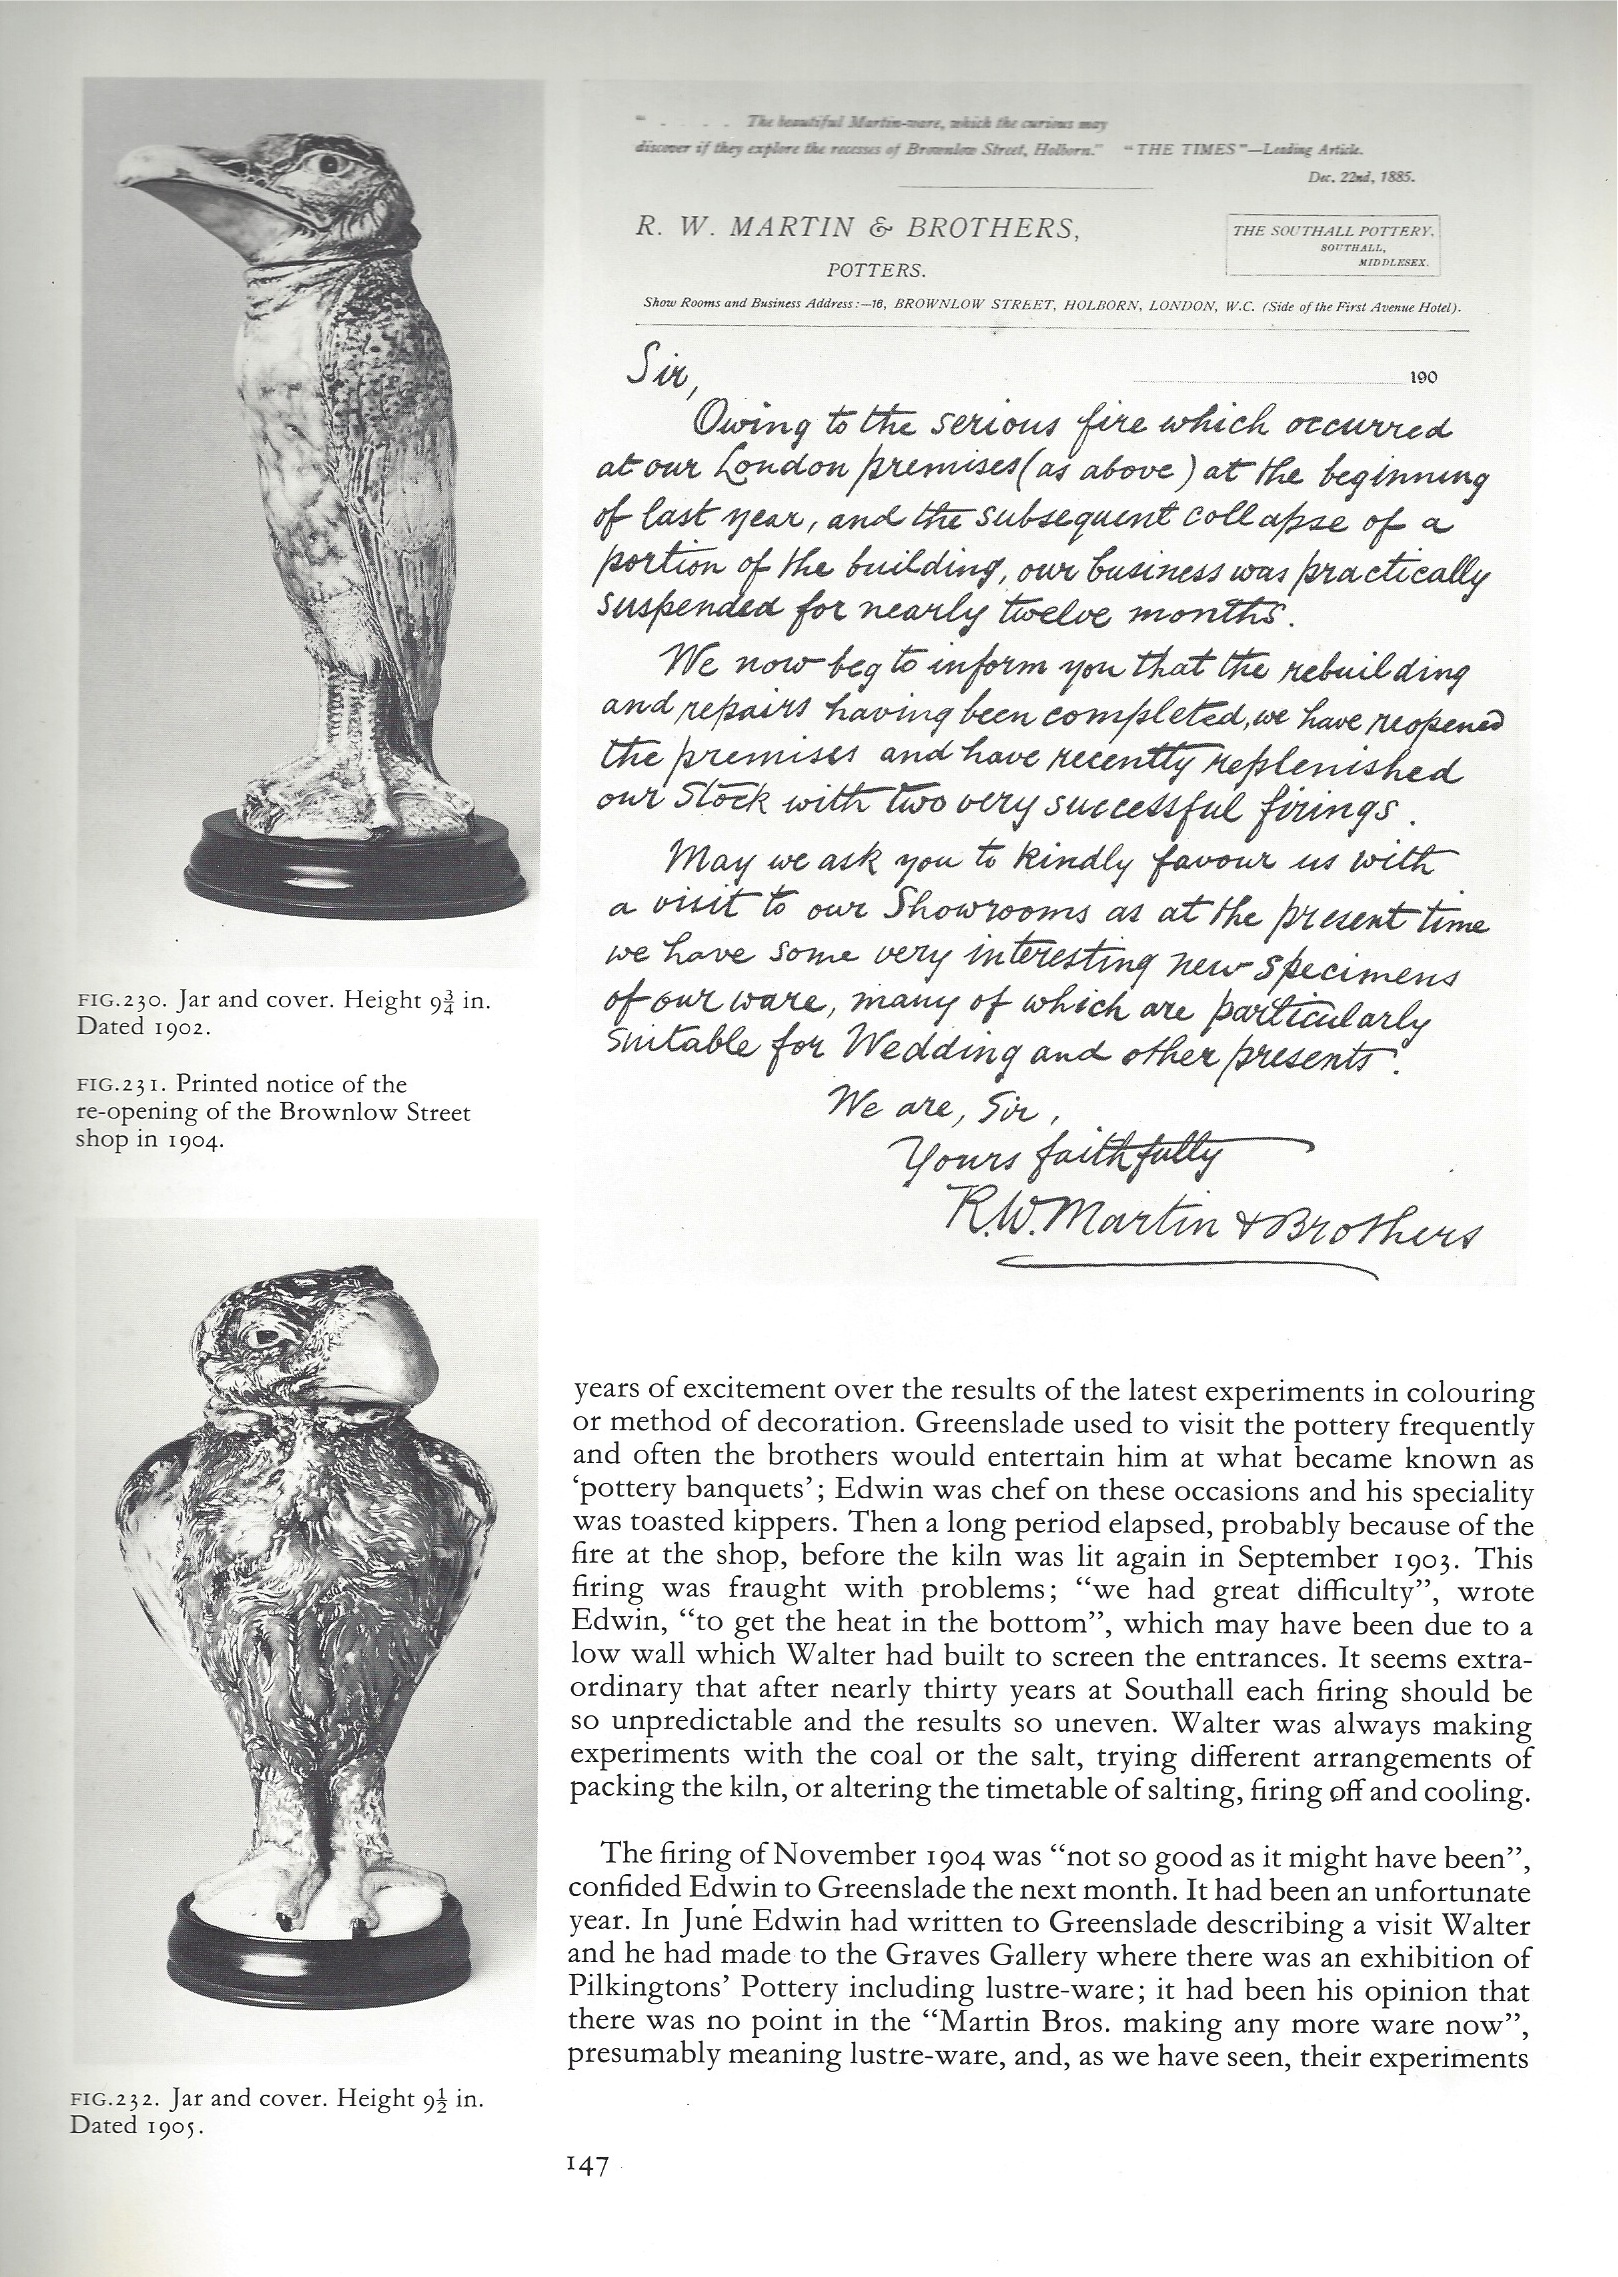 " . . . . The beautiful Martin-ware, which the curious may
discover if they explore the recesses of Brownlow Street, Holborn." "THE TIMES"—Leading Article.
Dec. 22nd, 1885.
R. W. MARTIN & BROTHERS,
POTTERS.
THE SOUTHALL POTTERY,
SOUTHALL,
MIDDLESEX.
Show Rooms and Business Address:—16, BROWNLOW STREET, HOLBORN, LONDON, W.C. (Side of the First Avenue Hotel).
190
Sir,
Owing to the serious fire which occurred
at our London premises (as above) at the beginning
of last year, and the subsequent collapse of a
portion of the building, our business was practically
suspended for nearly twelve months.
We now beg to inform you that the rebuilding
and repairs having been completed, we have reopened
the premises and have recently replenished
our Stock with two very successful firings.
May we ask you to kindly favour us with
a visit to our Showrooms as at the present time
we have some very interesting new specimens
of our ware, many of which are particularly
suitable for Wedding and other presents.
We are, Sir,
Yours faithfully
R.W. Martin & Brothers
FIG.230. Jar and cover. Height 9¾ in.
Dated 1902.
FIG.231. Printed notice of the
re-opening of the Brownlow Street
shop in 1904.
FIG.232. Jar and cover. Height 9½ in.
Dated 1905.
years of excitement over the results of the latest experiments in colouring
or method of decoration. Greenslade used to visit the pottery frequently
and often the brothers would entertain him at what became known as
'pottery banquets'; Edwin was chef on these occasions and his speciality
was toasted kippers. Then a long period elapsed, probably because of the
fire at the shop, before the kiln was lit again in September 1903. This
firing was fraught with problems; "we had great difficulty", wrote
Edwin, "to get the heat in the bottom", which may have been due to a
low wall which Walter had built to screen the entrances. It seems extra-
ordinary that after nearly thirty years at Southall each firing should be
so unpredictable and the results so uneven. Walter was always making
experiments with the coal or the salt, trying different arrangements of
packing the kiln, or altering the timetable of salting, firing off and cooling.
The firing of November 1904 was "not so good as it might have been",
confided Edwin to Greenslade the next month. It had been an unfortunate
year. In June Edwin had written to Greenslade describing a visit Walter
and he had made to the Graves Gallery where there was an exhibition of
Pilkingtons' Pottery including lustre-ware; it had been his opinion that
there was no point in the "Martin Bros. making any more ware now",
presumably meaning lustre-ware, and, as we have seen, their experiments
147